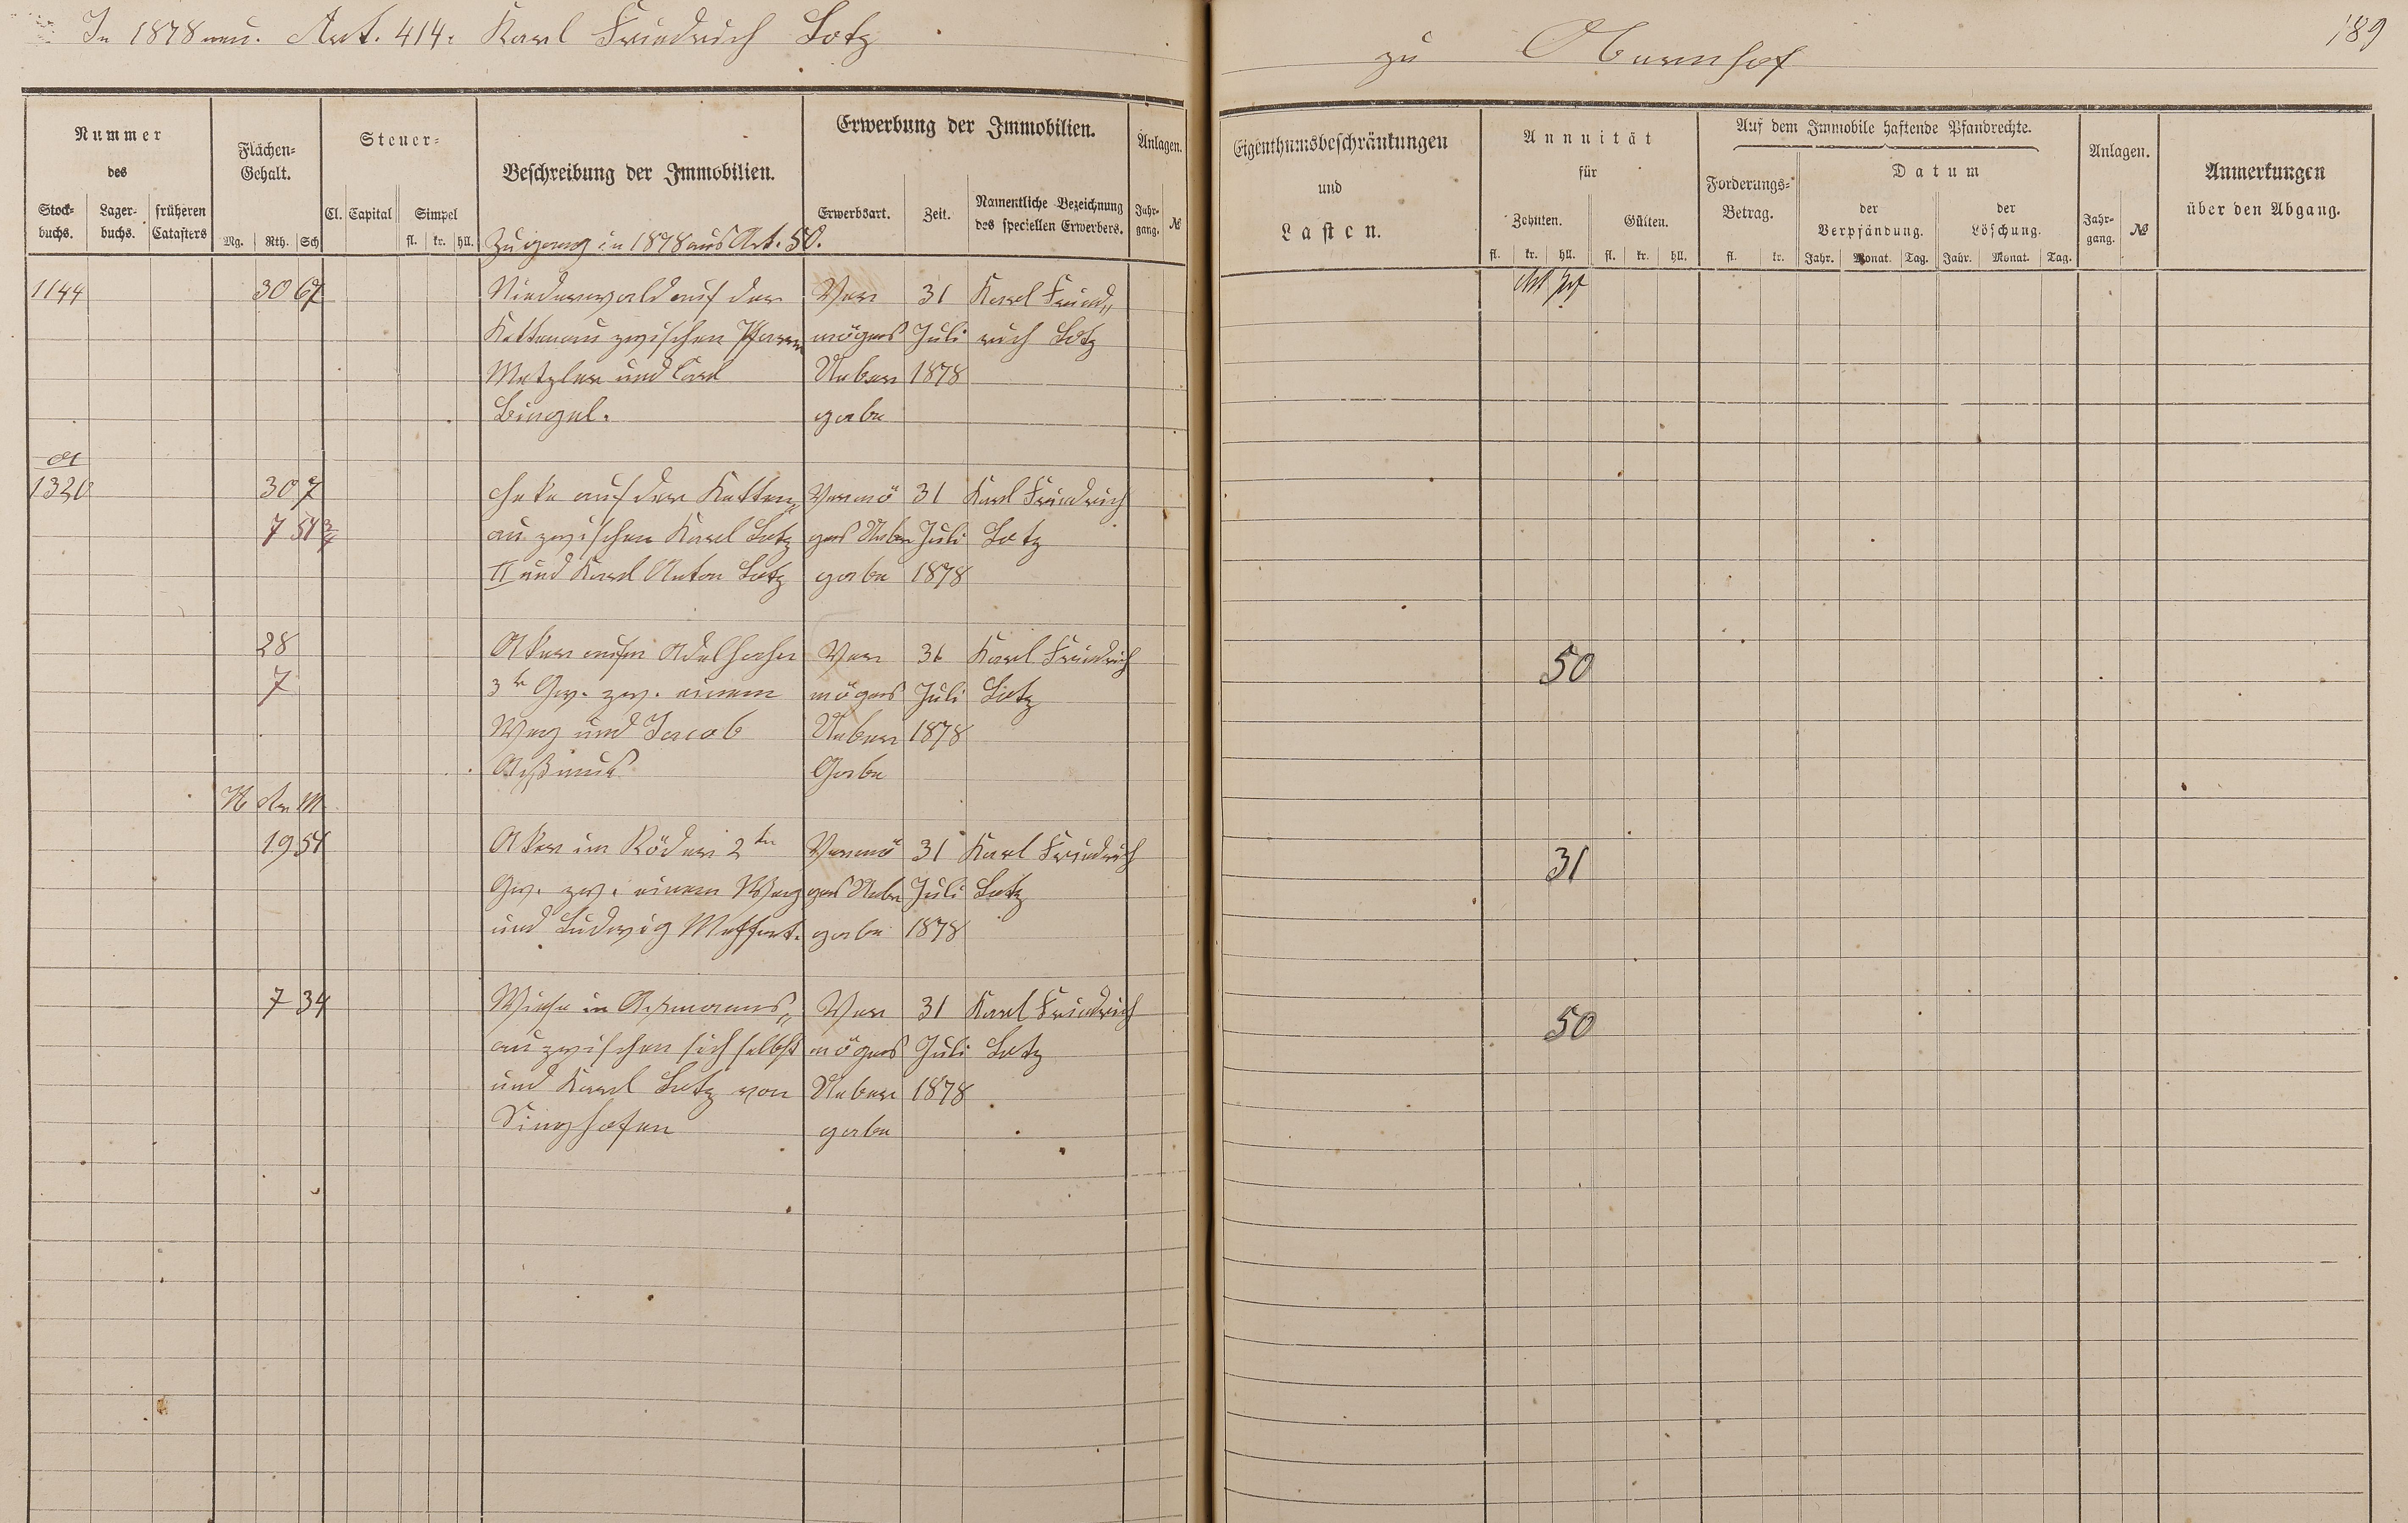 In 1878 neu. Art. 414. Karl Friedrich Lotz
zu Obernhof
189
Nummer des
Stockbuchs. Lagerbuchs. früheren Catasters
Flächen-Gehalt.
Mg. Rth. Sch
Steuer-
Cl. Capital Simpel
fl. kr. hll.
Beschreibung der Immobilien.
Erwerbung der Immobilien.
Erwerbsart. Zeit. Namentliche Bezeichnung des speciellen Erwerbers.
Anlagen.
Jahrgang. №
Eigenthumsbeschränkungen
und
Lasten.
Annuität
für
Zehnten. Gülten.
fl. kr. hll. fl. kr. hll.
Auf dem Immobile haftende Pfandrechte.
Forderungs-Betrag.
fl. kr.
Datum
der Verpfändung. der Löschung.
Jahr. Monat. Tag. Jahr. Monat. Tag.
Anlagen.
Jahrgang. №
Anmerkungen
über den Abgang.
Zugang in 1878 aus Art. 50.
1144 30 67 Niederwald auf der Ver 31 Karl Fried„
Kettenau zwischen Pfarrer mögens Juli rich Lotz
Metzler und Carl Ueber 1878
Bingel. gabe
a
1320 30 7 auf der Ketten„ Vermö 31 Karl Friedrich
7 51 3/4 au zwischen Karl Lotz gens Ueber Juli Lotz
II und Karl Anton Lotz gabe 1878
28 Aker Ver 31 Karl Friedrich 50
7 3te Gew. zw. einem mögens Juli Lotz
Weg und Jacob Ueber 1878
Aßmus Gabe
H Ar M
19 51 Aker im Röder 2ten Vermö 31 Karl Friedrich 31
Gew. zw. einem Weg gens Ueber Juli Lotz
und Ludwig Meffert. gabe 1878
7 34 Wiese in Ver 31 Karl Friedrich 50
au zwischen sich selbst mögens Juli Lotz
und Karl Lotz von Ueber 1878
Singhofen gabe